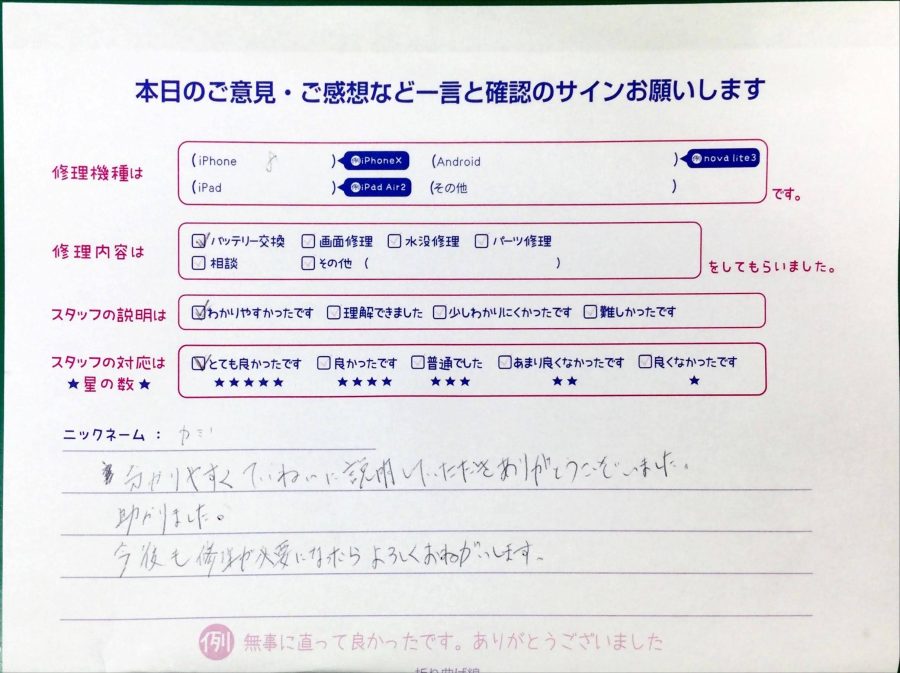 本日のご意見・ご感想など一言と確認のサインお願いします
修理機種は
(iPhone 8 ) 例iPhoneX (Android ) 例nova lite3
(iPad ) 例iPad Air2 (その他 )
です。
修理内容は
バッテリー交換 画面修理 水没修理 パーツ修理
相談 その他 ( )
をしてもらいました。
スタッフの説明は
わかりやすかったです 理解できました 少しわかりにくかったです 難しかったです
スタッフの対応は
★星の数★
とても良かったです 良かったです 普通でした あまり良くなかったです 良くなかったです
★★★★★ ★★★★ ★★★ ★★ ★
ニックネーム：カミ
分かりやすくていねいに説明していただきありがとうございました。
助かりました。
今後も修理が必要になったらよろしくおねがいします。
例 無事に直って良かったです。ありがとうございました